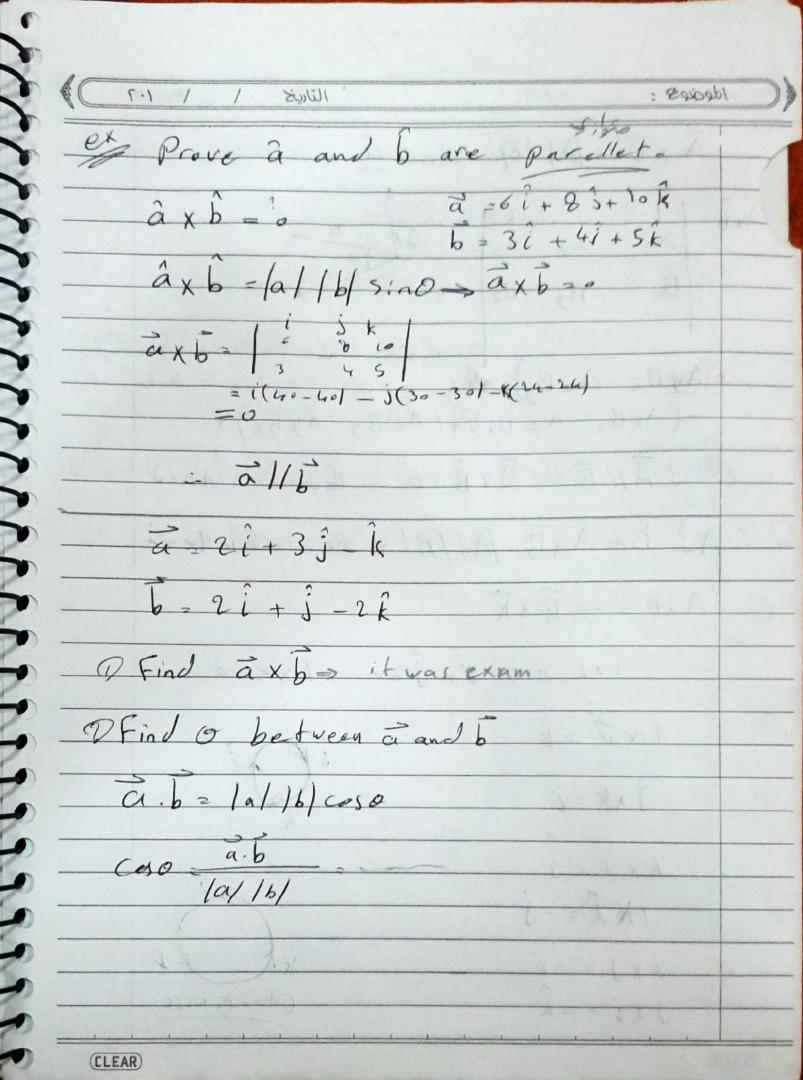 الموضوع :
التاريخ / / ٢٠١
ex Prove â and b̂ are parellel.
â × b̂ =? 0
a⃗ = 6î + 8ĵ + 10k̂
b⃗ = 3î + 4ĵ + 5k̂
â × b̂ = |a| |b| sinθ → a⃗ × b⃗ = 0
a⃗ × b⃗ = | i j k
6 8 10
3 4 5 |
= i(40-40) - j(30-30) - k(24-24)
= 0
∴ a⃗ // b⃗
a⃗ = 2î + 3ĵ - k̂
b⃗ = 2î + ĵ - 2k̂
① Find a⃗ × b⃗ ⇒ it was exam
② Find θ between a⃗ and b⃗
a⃗ . b⃗ = |a| |b| cosθ
cosθ = a⃗.b⃗ / |a| |b| =
CLEAR